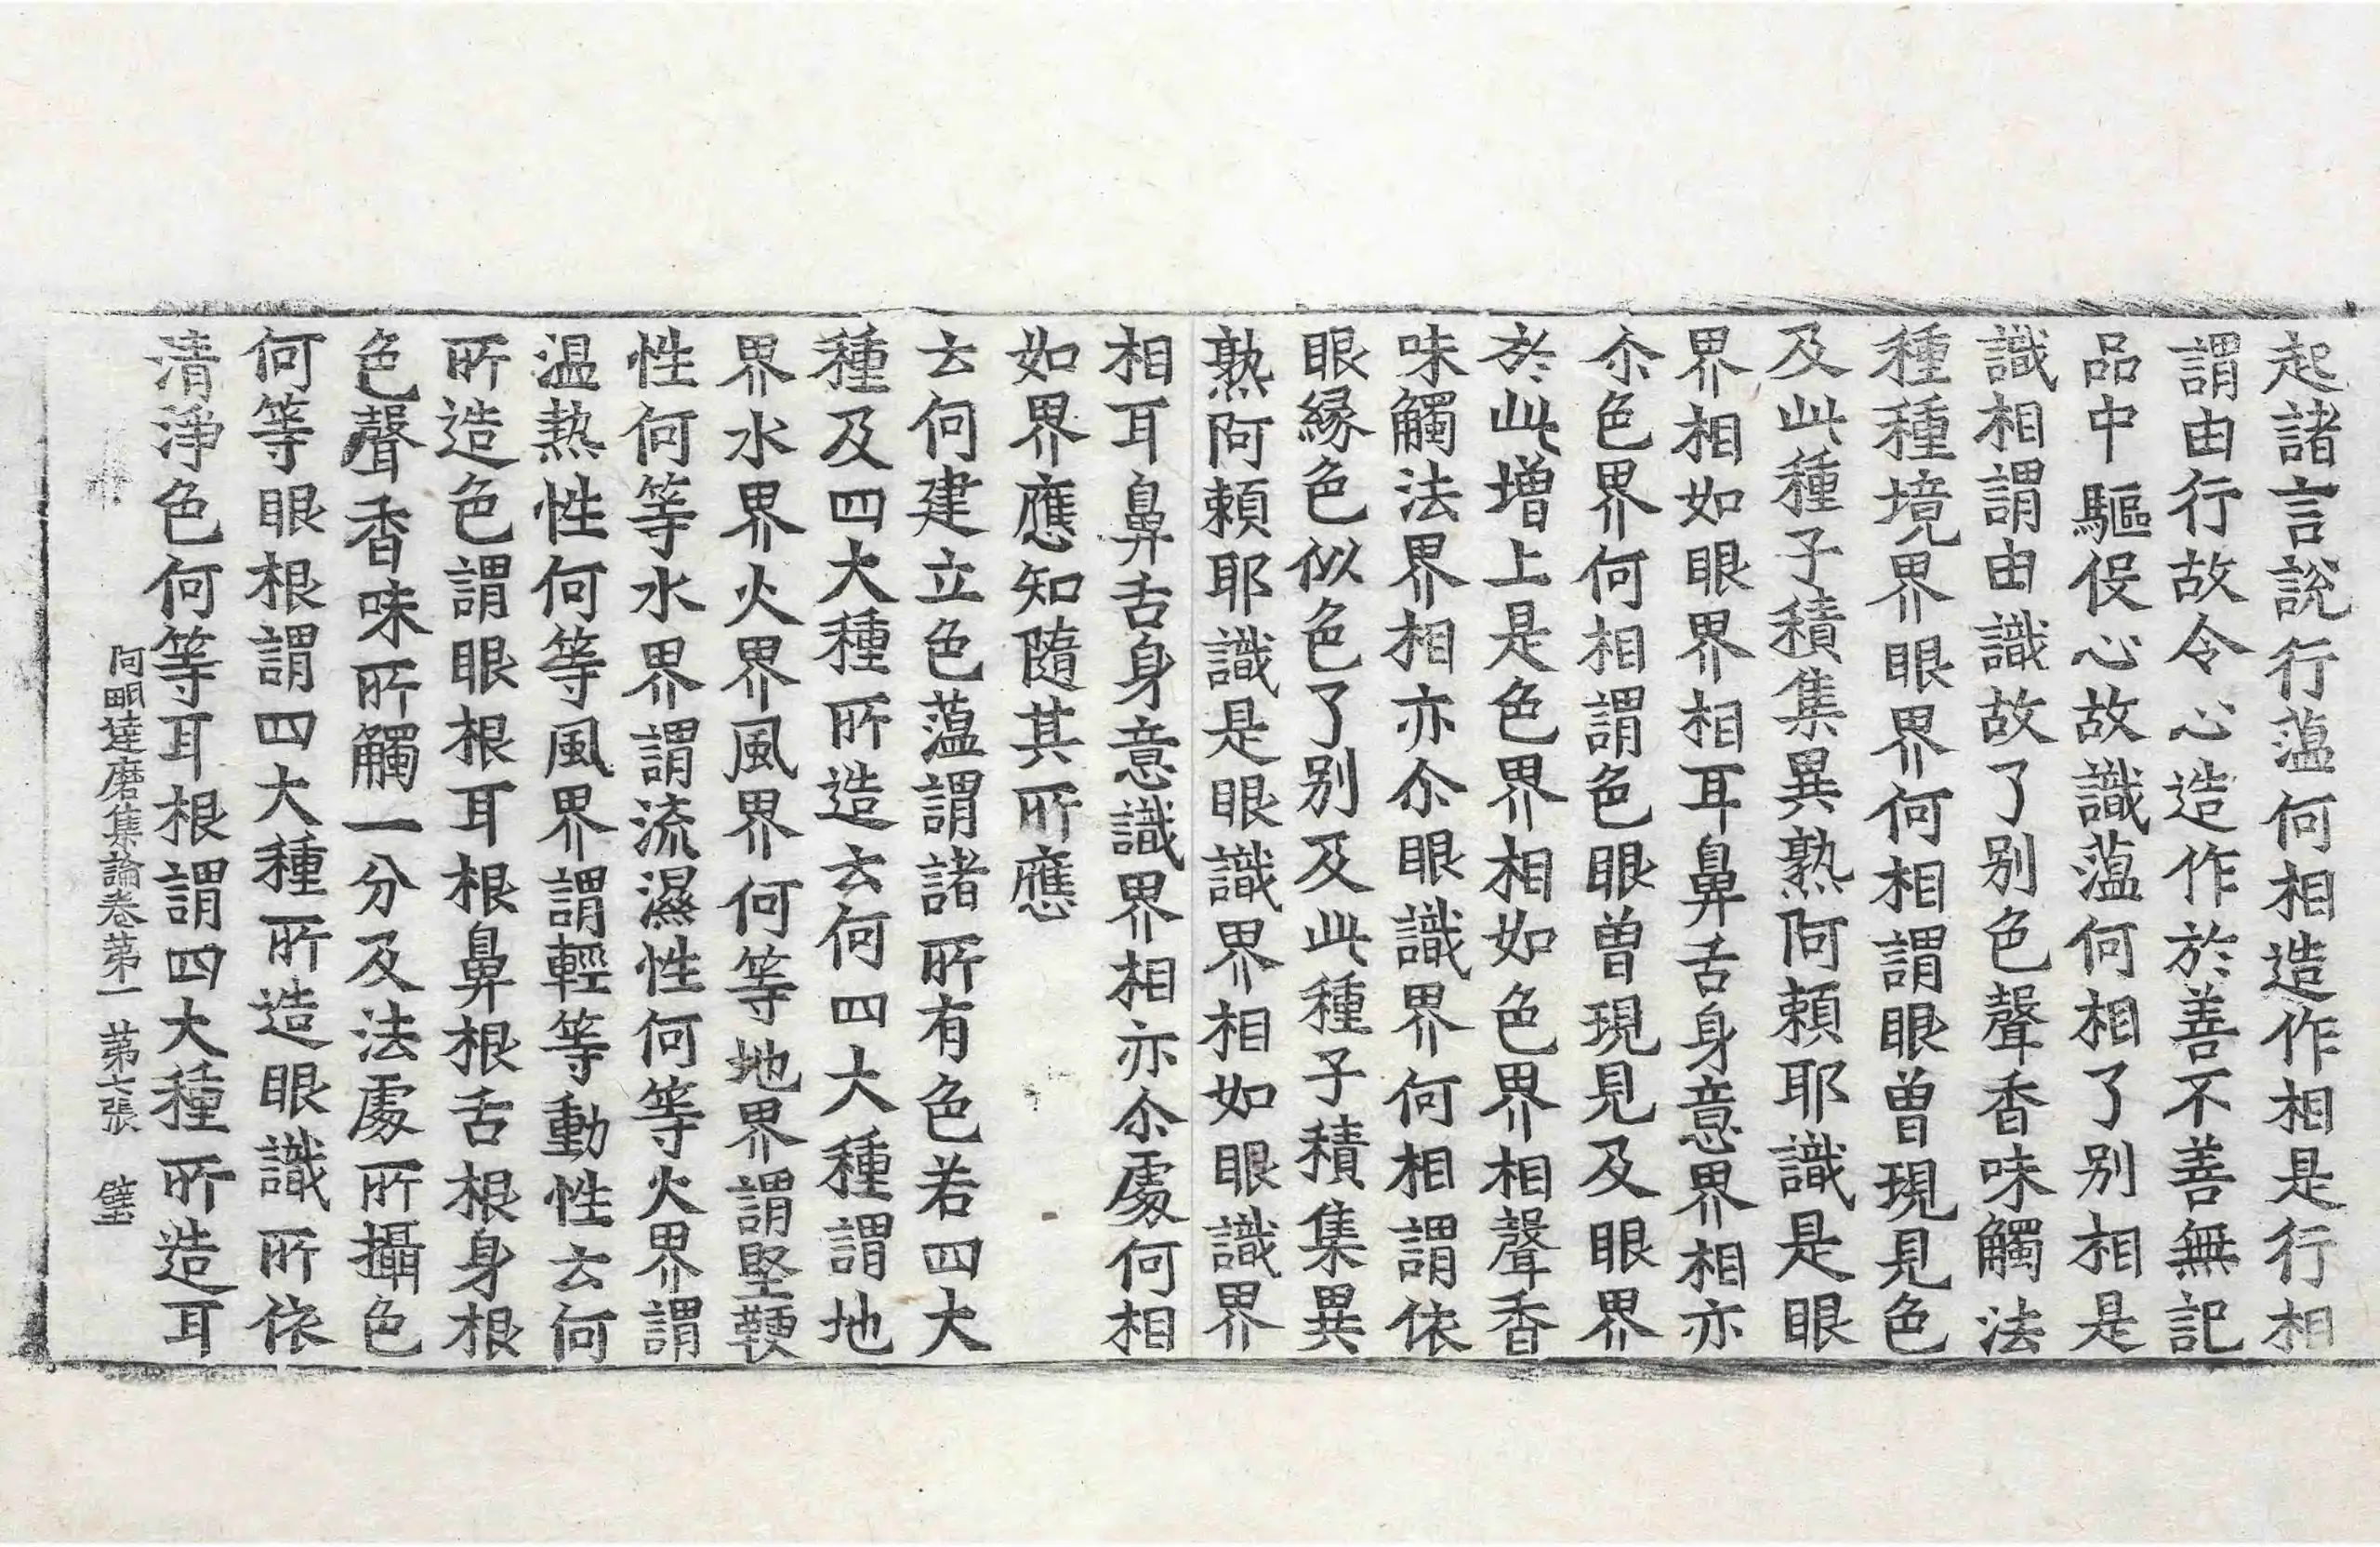 起諸言說行薀何相造作相是行相
謂由行故令心造作於善不善無記
品中驅伇心故識薀何相了别相是
識相謂由識故了别色聲香味觸法
種種境界眼界何相謂眼曾現見色
及此種子積集異熟阿頼耶識是眼
界相如眼界相耳鼻舌身意界相亦
尒色界何相謂色眼曾現見及眼界
於此增上是色界相如色界相聲香
味觸法界相亦尒眼識界何相謂依
眼緣色似色了别及此種子積集異
熟阿頼耶識是眼識界相如眼識界
相耳鼻舌身意識界相亦尒處何相
如界應知隨其所應
云何建立色薀謂諸所有色若四大
種及四大種所造云何四大種謂地
界水界火界風界何等地界謂堅鞕
性何等水界謂流濕性何等火界謂
温熱性何等風界謂輕等動性云何
所造色謂眼根耳根鼻根舌根身根
色聲香味所觸一分及法處所攝色
何等眼根謂四大種所造眼識所依
清淨色何等耳根謂四大種所造耳
阿毗達磨集論卷第一 第六張 璧